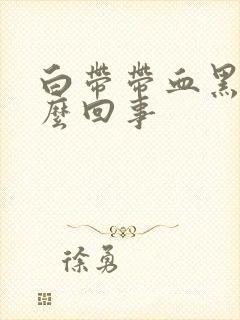 白带带血黑
麼回事
徐勇